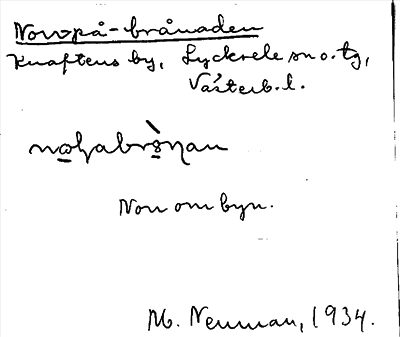 Norrpå-brånaden
Knaftens by, Lycksele sn o. tg,
Västerb. l.
Norr om byn.
M. Neuman, 1934.